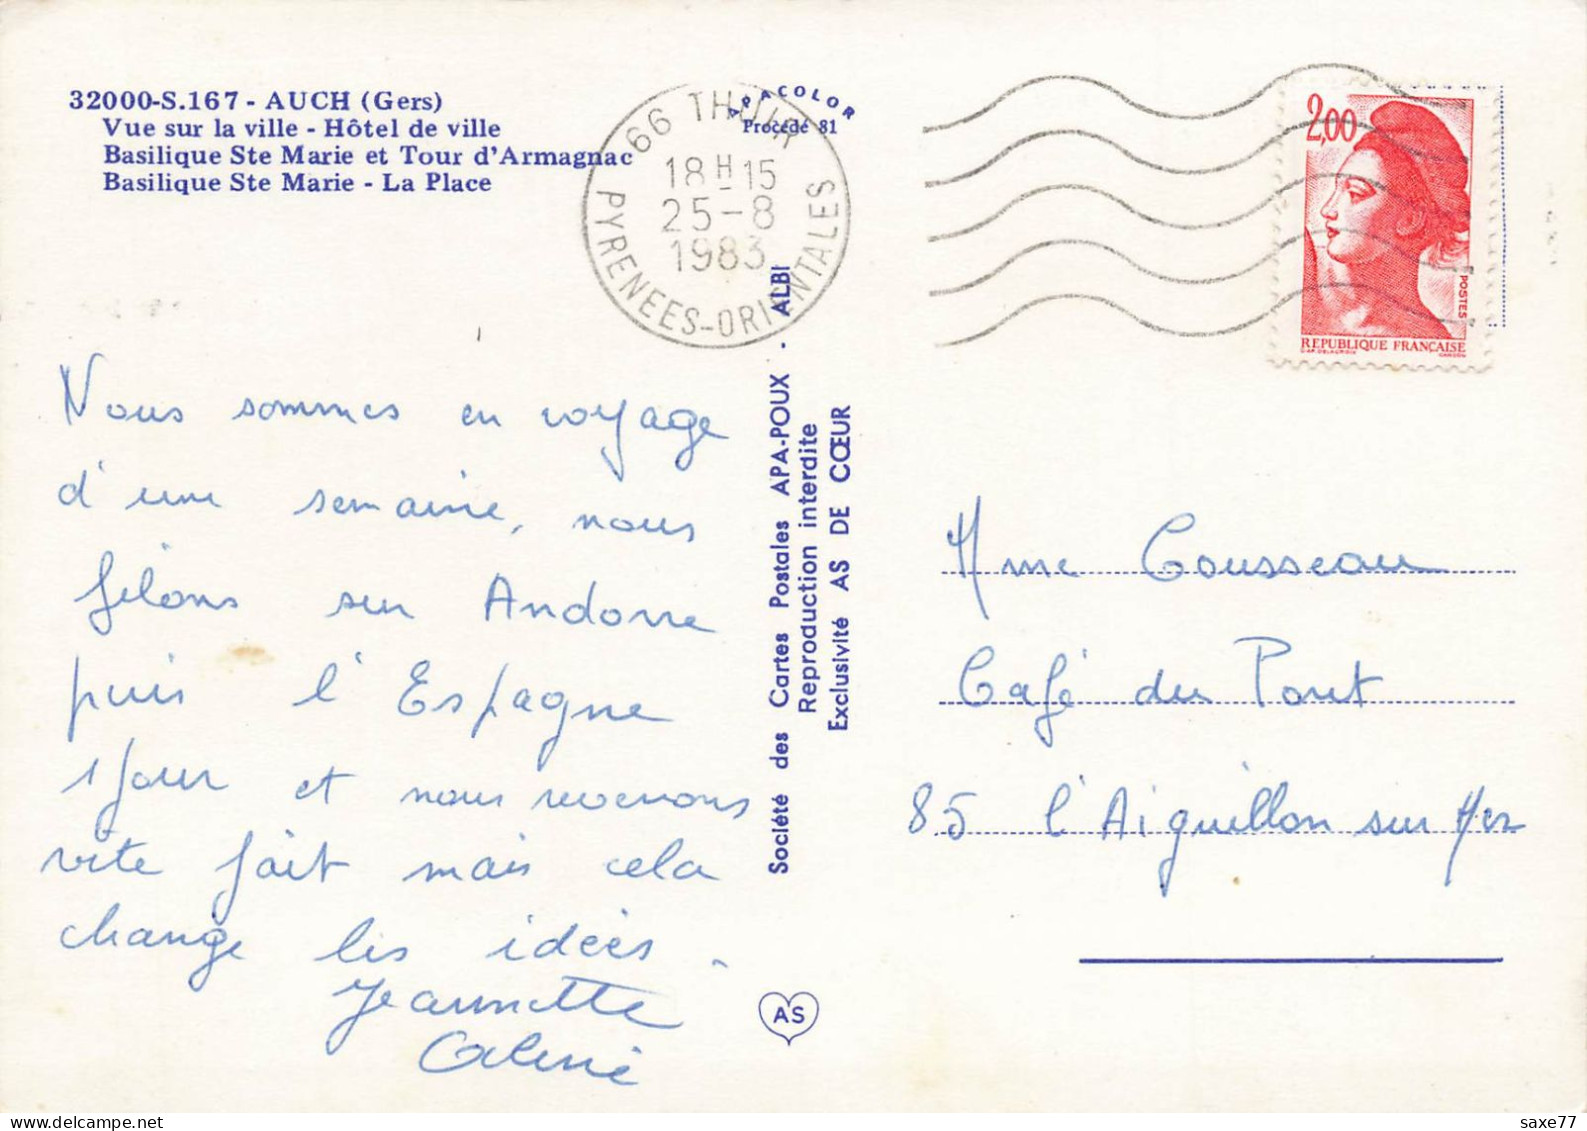 32000-S.167 - AUCH (Gers)
Vue sur la ville - Hôtel de ville
Basilique Ste Marie et Tour d'Armagnac
Basilique Ste Marie - La Place
66 THUIR
18H15
25-8
1983
PYRENEES-ORIENTALES
APACOLOR
Procédé 81
2,00
POSTES
REPUBLIQUE FRANÇAISE
D'AP. DELACROIX
GANDON
Nous sommes en voyage
d'une semaine, nous
filons sur Andorre
puis l'Espagne
1 jour et nous revenons
vite fait mais cela
change les idées.
Jeannette
Société des Cartes Postales APA-POUX - ALBI
Reproduction interdite
Exclusivité AS DE CŒUR
AS
Mme Cousseau
Café du Pont
85 l'Aiguillon sur Mer
saxe77